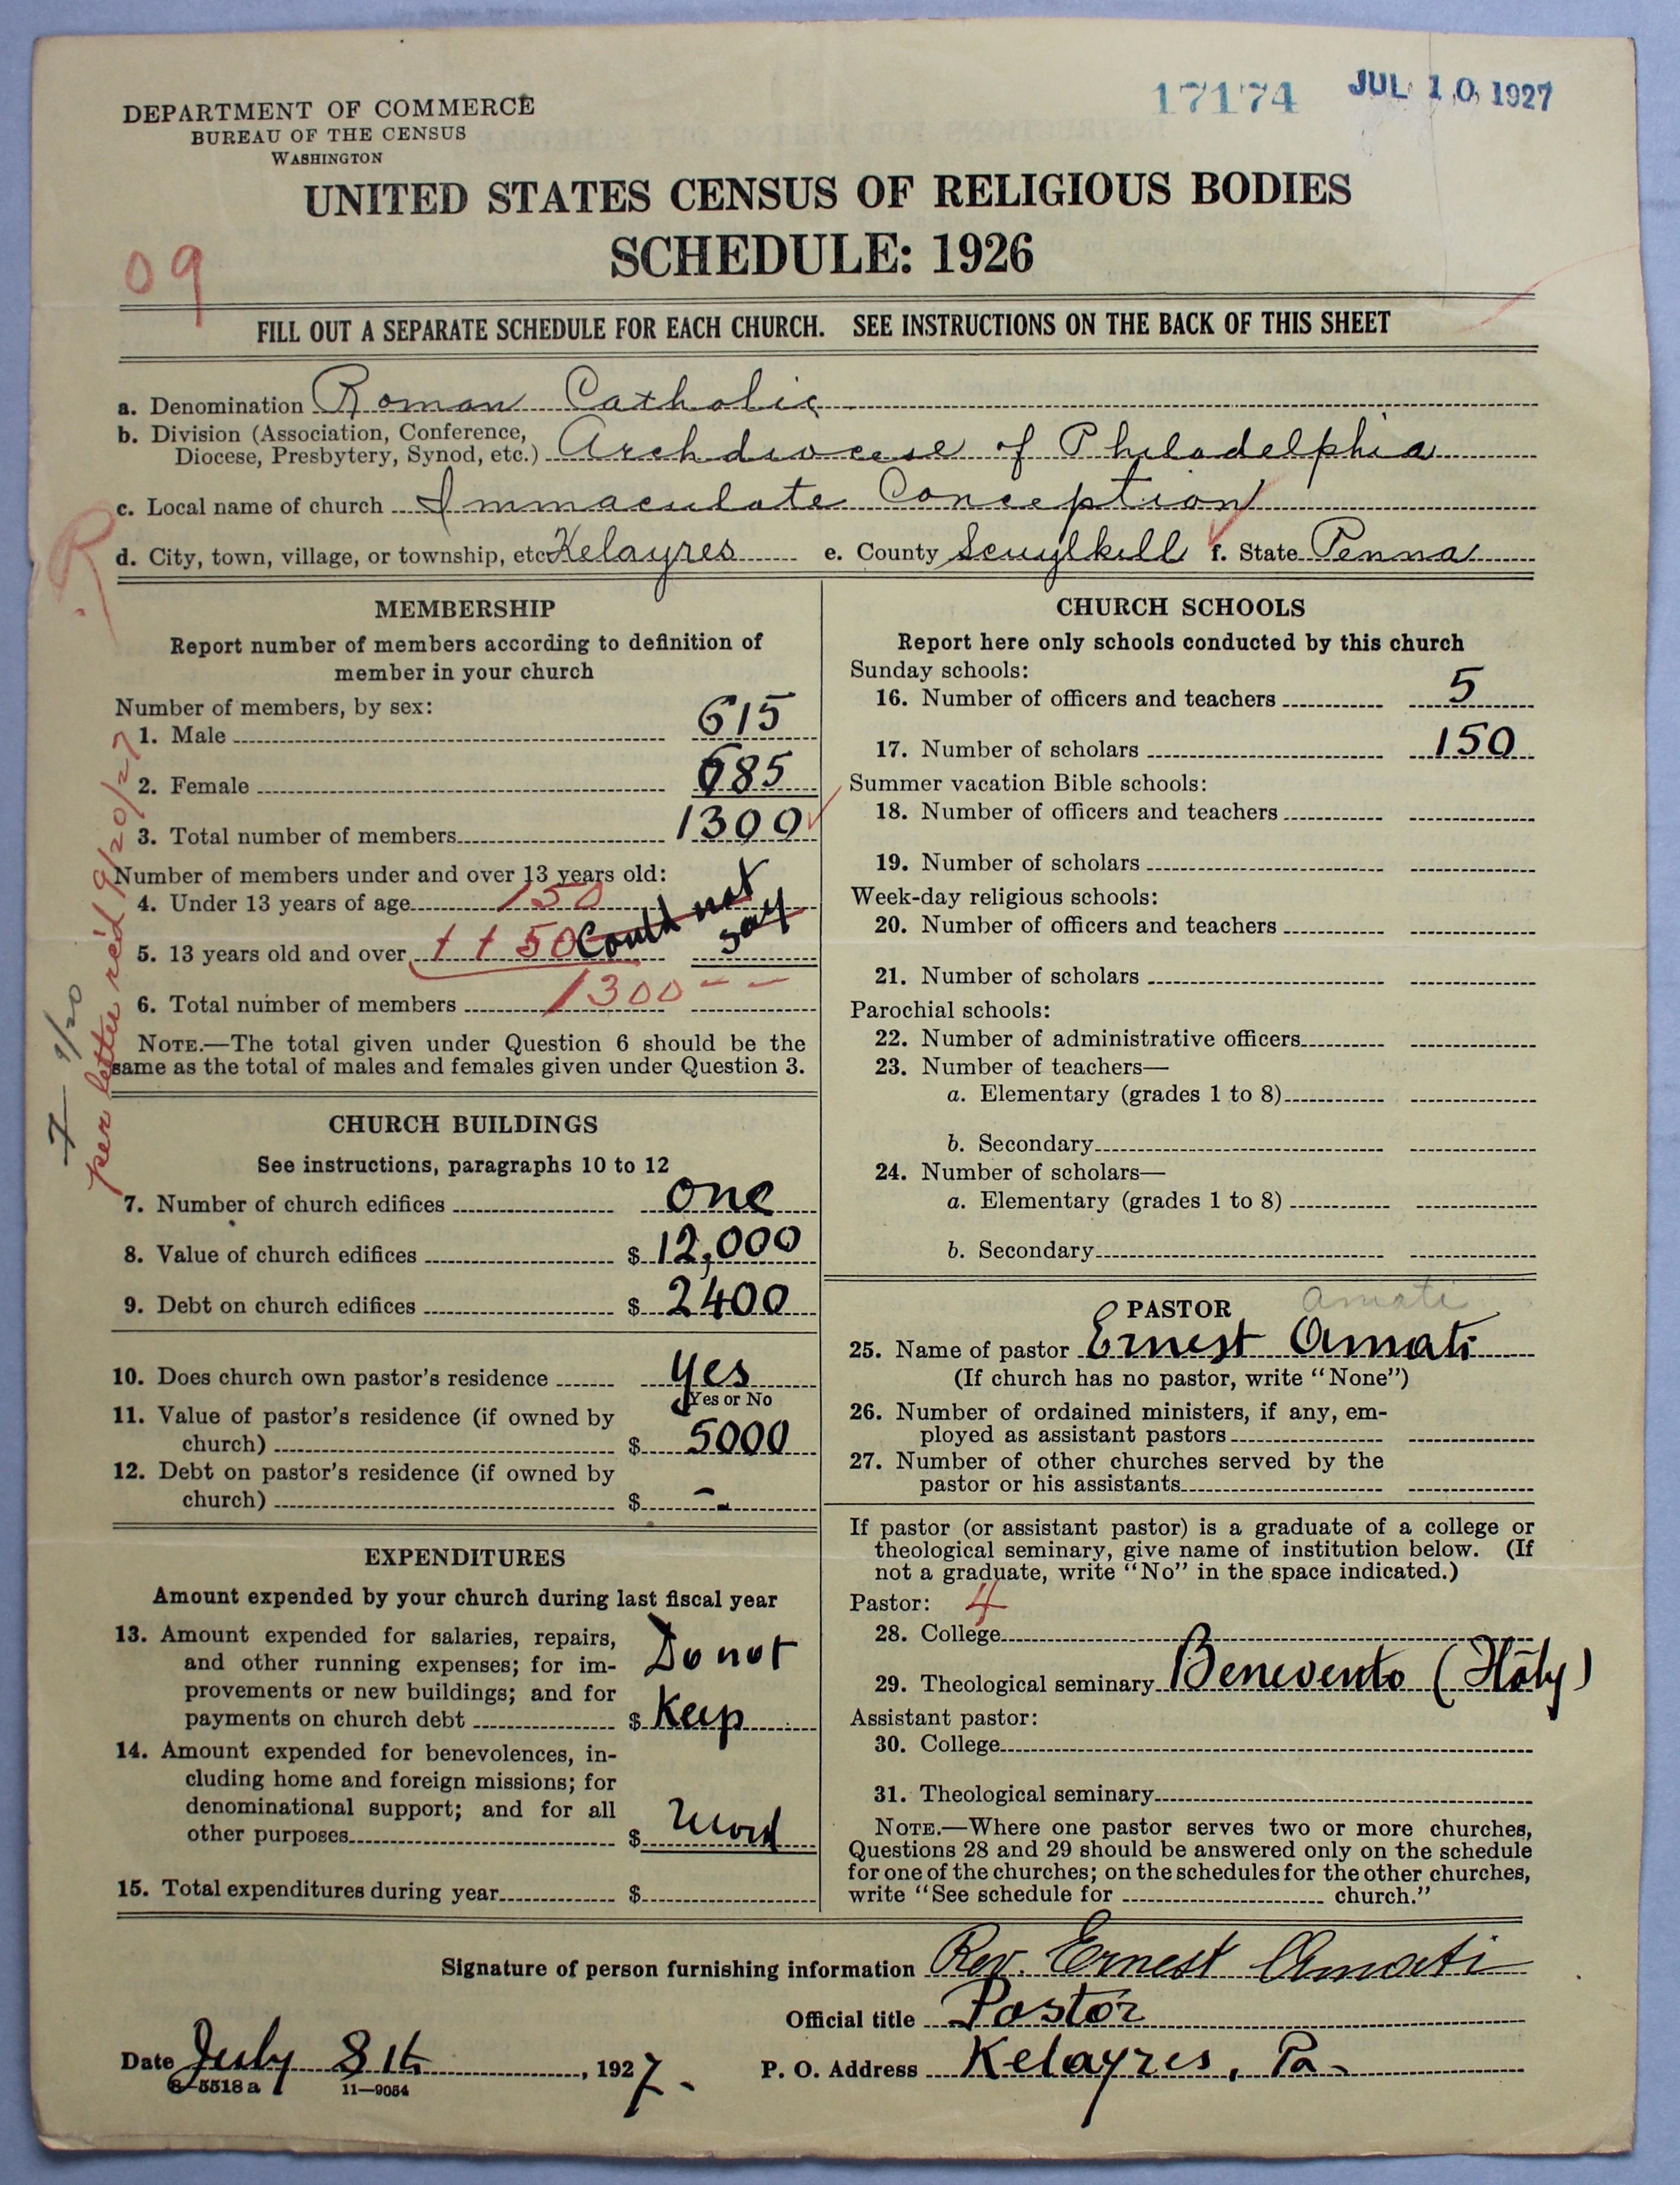 17174 JUL 10 1927
DEPARTMENT OF COMMERCE
BUREAU OF THE CENSUS
WASHINGTON
UNITED STATES CENSUS OF RELIGIOUS BODIES
SCHEDULE: 1926
09
FILL OUT A SEPARATE SCHEDULE FOR EACH CHURCH. SEE INSTRUCTIONS ON THE BACK OF THIS SHEET
a. Denomination Roman Catholic
b. Division (Association, Conference, Diocese, Presbytery, Synod, etc.) Archdiocese of Philadelphia
c. Local name of church Immaculate Conception
d. City, town, village, or township, etc. Kelayres e. County Scuylkill f. State Penna
R
MEMBERSHIP
Report number of members according to definition of
member in your church
Number of members, by sex:
1. Male 615
2. Female 685
3. Total number of members 1300
Number of members under and over 13 years old:
4. Under 13 years of age 150 Could not
5. 13 years old and over 1150 say
6. Total number of members 1300 - -
NOTE.—The total given under Question 6 should be the
same as the total of males and females given under Question 3.
per letter rec'd 9/20/27
7 9/20
CHURCH BUILDINGS
See instructions, paragraphs 10 to 12
7. Number of church edifices one
8. Value of church edifices $ 12,000
9. Debt on church edifices $ 2400
10. Does church own pastor's residence yes
Yes or No
11. Value of pastor's residence (if owned by
church) $ 5000
12. Debt on pastor's residence (if owned by
church) $ -
EXPENDITURES
Amount expended by your church during last fiscal year
13. Amount expended for salaries, repairs,
and other running expenses; for im- Do not
provements or new buildings; and for
payments on church debt $ Keep
14. Amount expended for benevolences, in-
cluding home and foreign missions; for
denominational support; and for all
other purposes $
15. Total expenditures during year $
CHURCH SCHOOLS
Report here only schools conducted by this church
Sunday schools:
16. Number of officers and teachers 5
17. Number of scholars 150
Summer vacation Bible schools:
18. Number of officers and teachers
19. Number of scholars
Week-day religious schools:
20. Number of officers and teachers
21. Number of scholars
Parochial schools:
22. Number of administrative officers
23. Number of teachers—
a. Elementary (grades 1 to 8)
b. Secondary
24. Number of scholars—
a. Elementary (grades 1 to 8)
b. Secondary
PASTOR Amati
25. Name of pastor Ernest Amati
(If church has no pastor, write "None")
26. Number of ordained ministers, if any, em-
ployed as assistant pastors
27. Number of other churches served by the
pastor or his assistants
If pastor (or assistant pastor) is a graduate of a college or
theological seminary, give name of institution below. (If
not a graduate, write "No" in the space indicated.)
Pastor: 4
28. College
29. Theological seminary Benevento (Italy)
Assistant pastor:
30. College
31. Theological seminary
NOTE.—Where one pastor serves two or more churches,
Questions 28 and 29 should be answered only on the schedule
for one of the churches; on the schedules for the other churches,
write "See schedule for church."
Signature of person furnishing information Rev. Ernest Amati
Official title Pastor
Date July 8th, 1927. P. O. Address Kelayres, Pa.
8—5518 a 11—9054